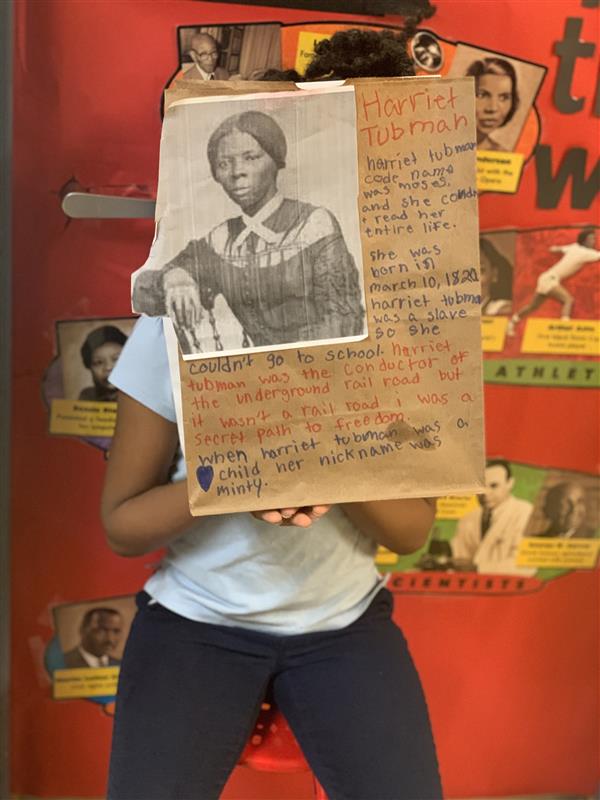 Harriet
Tubman
harriet tubman
code name
was moses.
and she couldn
t read her
entire life.
she was
born in
march 10, 1820
harriet tubma
was a slave
so she
couldn't go to school. harriet
tubman was the conductor of
the underground rail road but
it wasn't a rail road i was a
secret path to freedom.
when harriet tubman was a
child her nickname was
minty.
ATHLET
SCIENTISTS
t
w